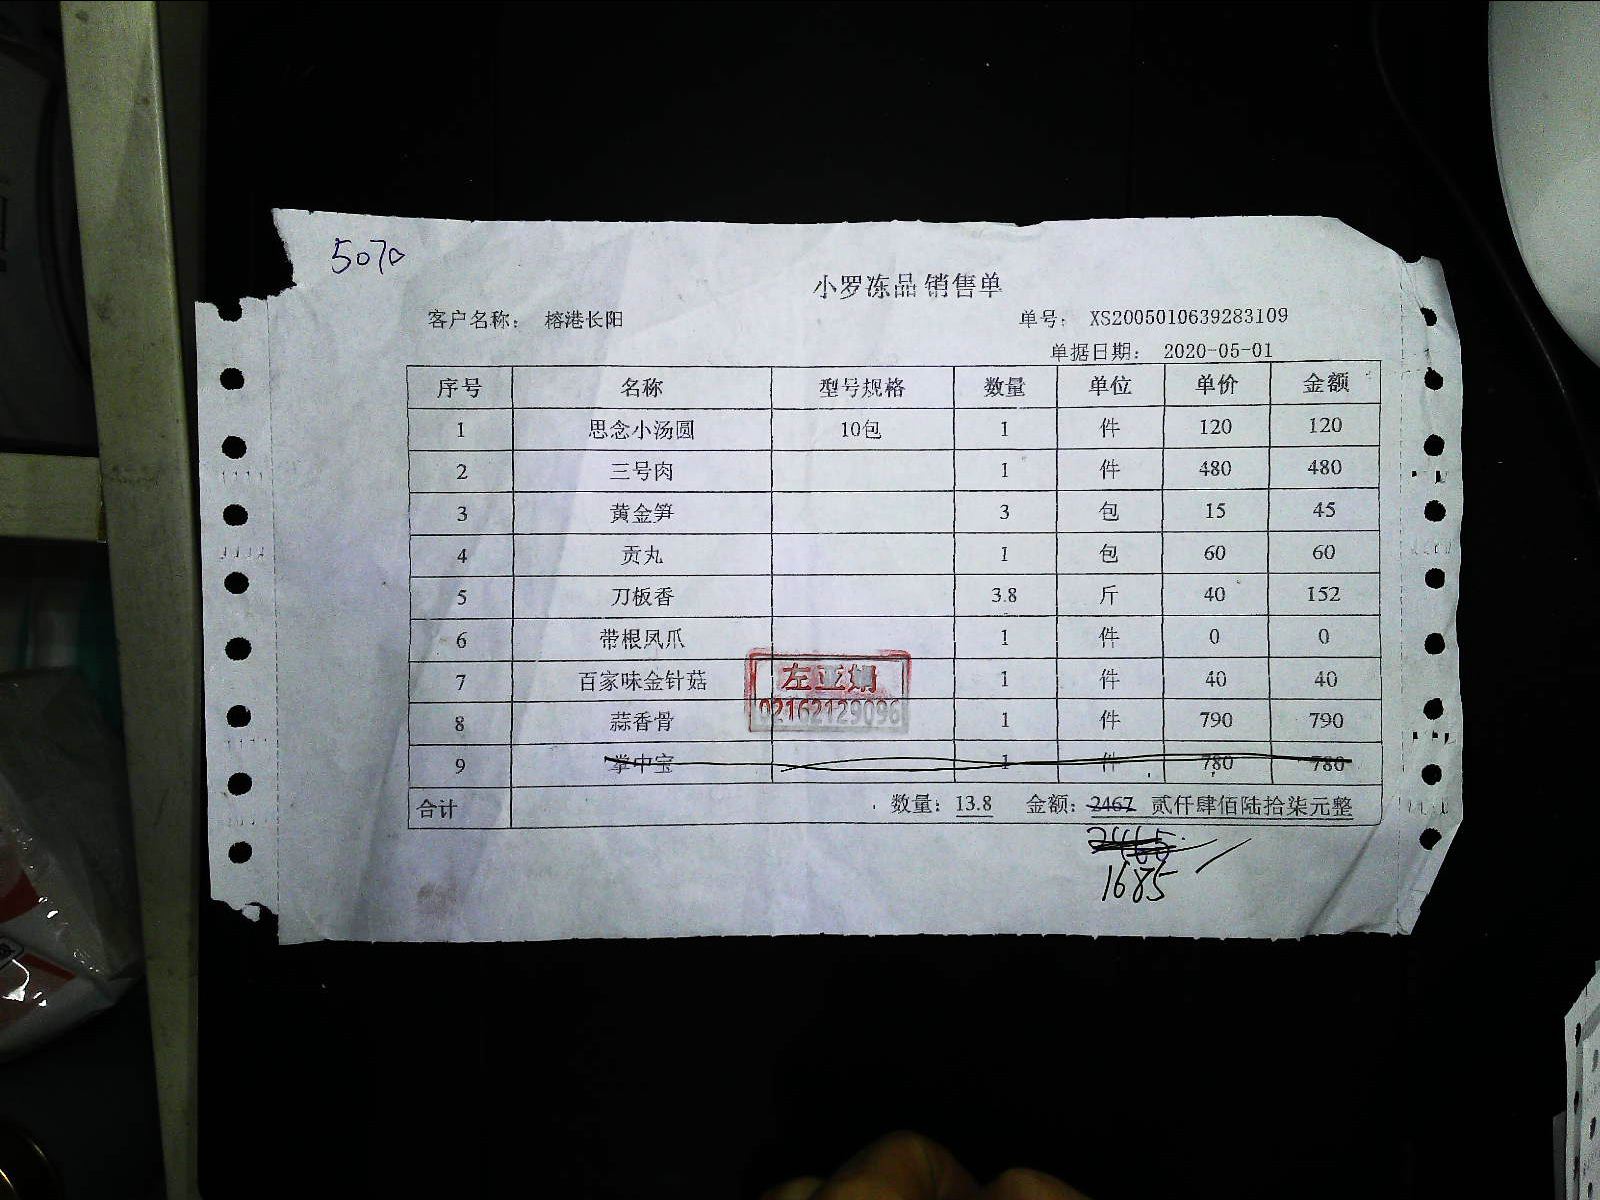 5070
小罗冻品 销售单
客户名称: 榕港长阳 单号: XS2005010639283109
单据日期: 2020-05-01
序号 名称 型号规格 数量 单位 单价 金额
1 思念小汤圆 10包 1 件 120 120
2 三号肉 1 件 480 480
3 黄金笋 3 包 15 45
4 贡丸 1 包 60 60
5 刀板香 3.8 斤 40 152
6 带根凤爪 1 件 0 0
7 百家味金针菇 1 件 40 40
左亚娟
02162129096
8 蒜香骨 1 件 790 790
9 掌中宝 1 件 780 780
合计 数量: 13.8 金额: 2467 贰仟肆佰陆拾柒元整
1685